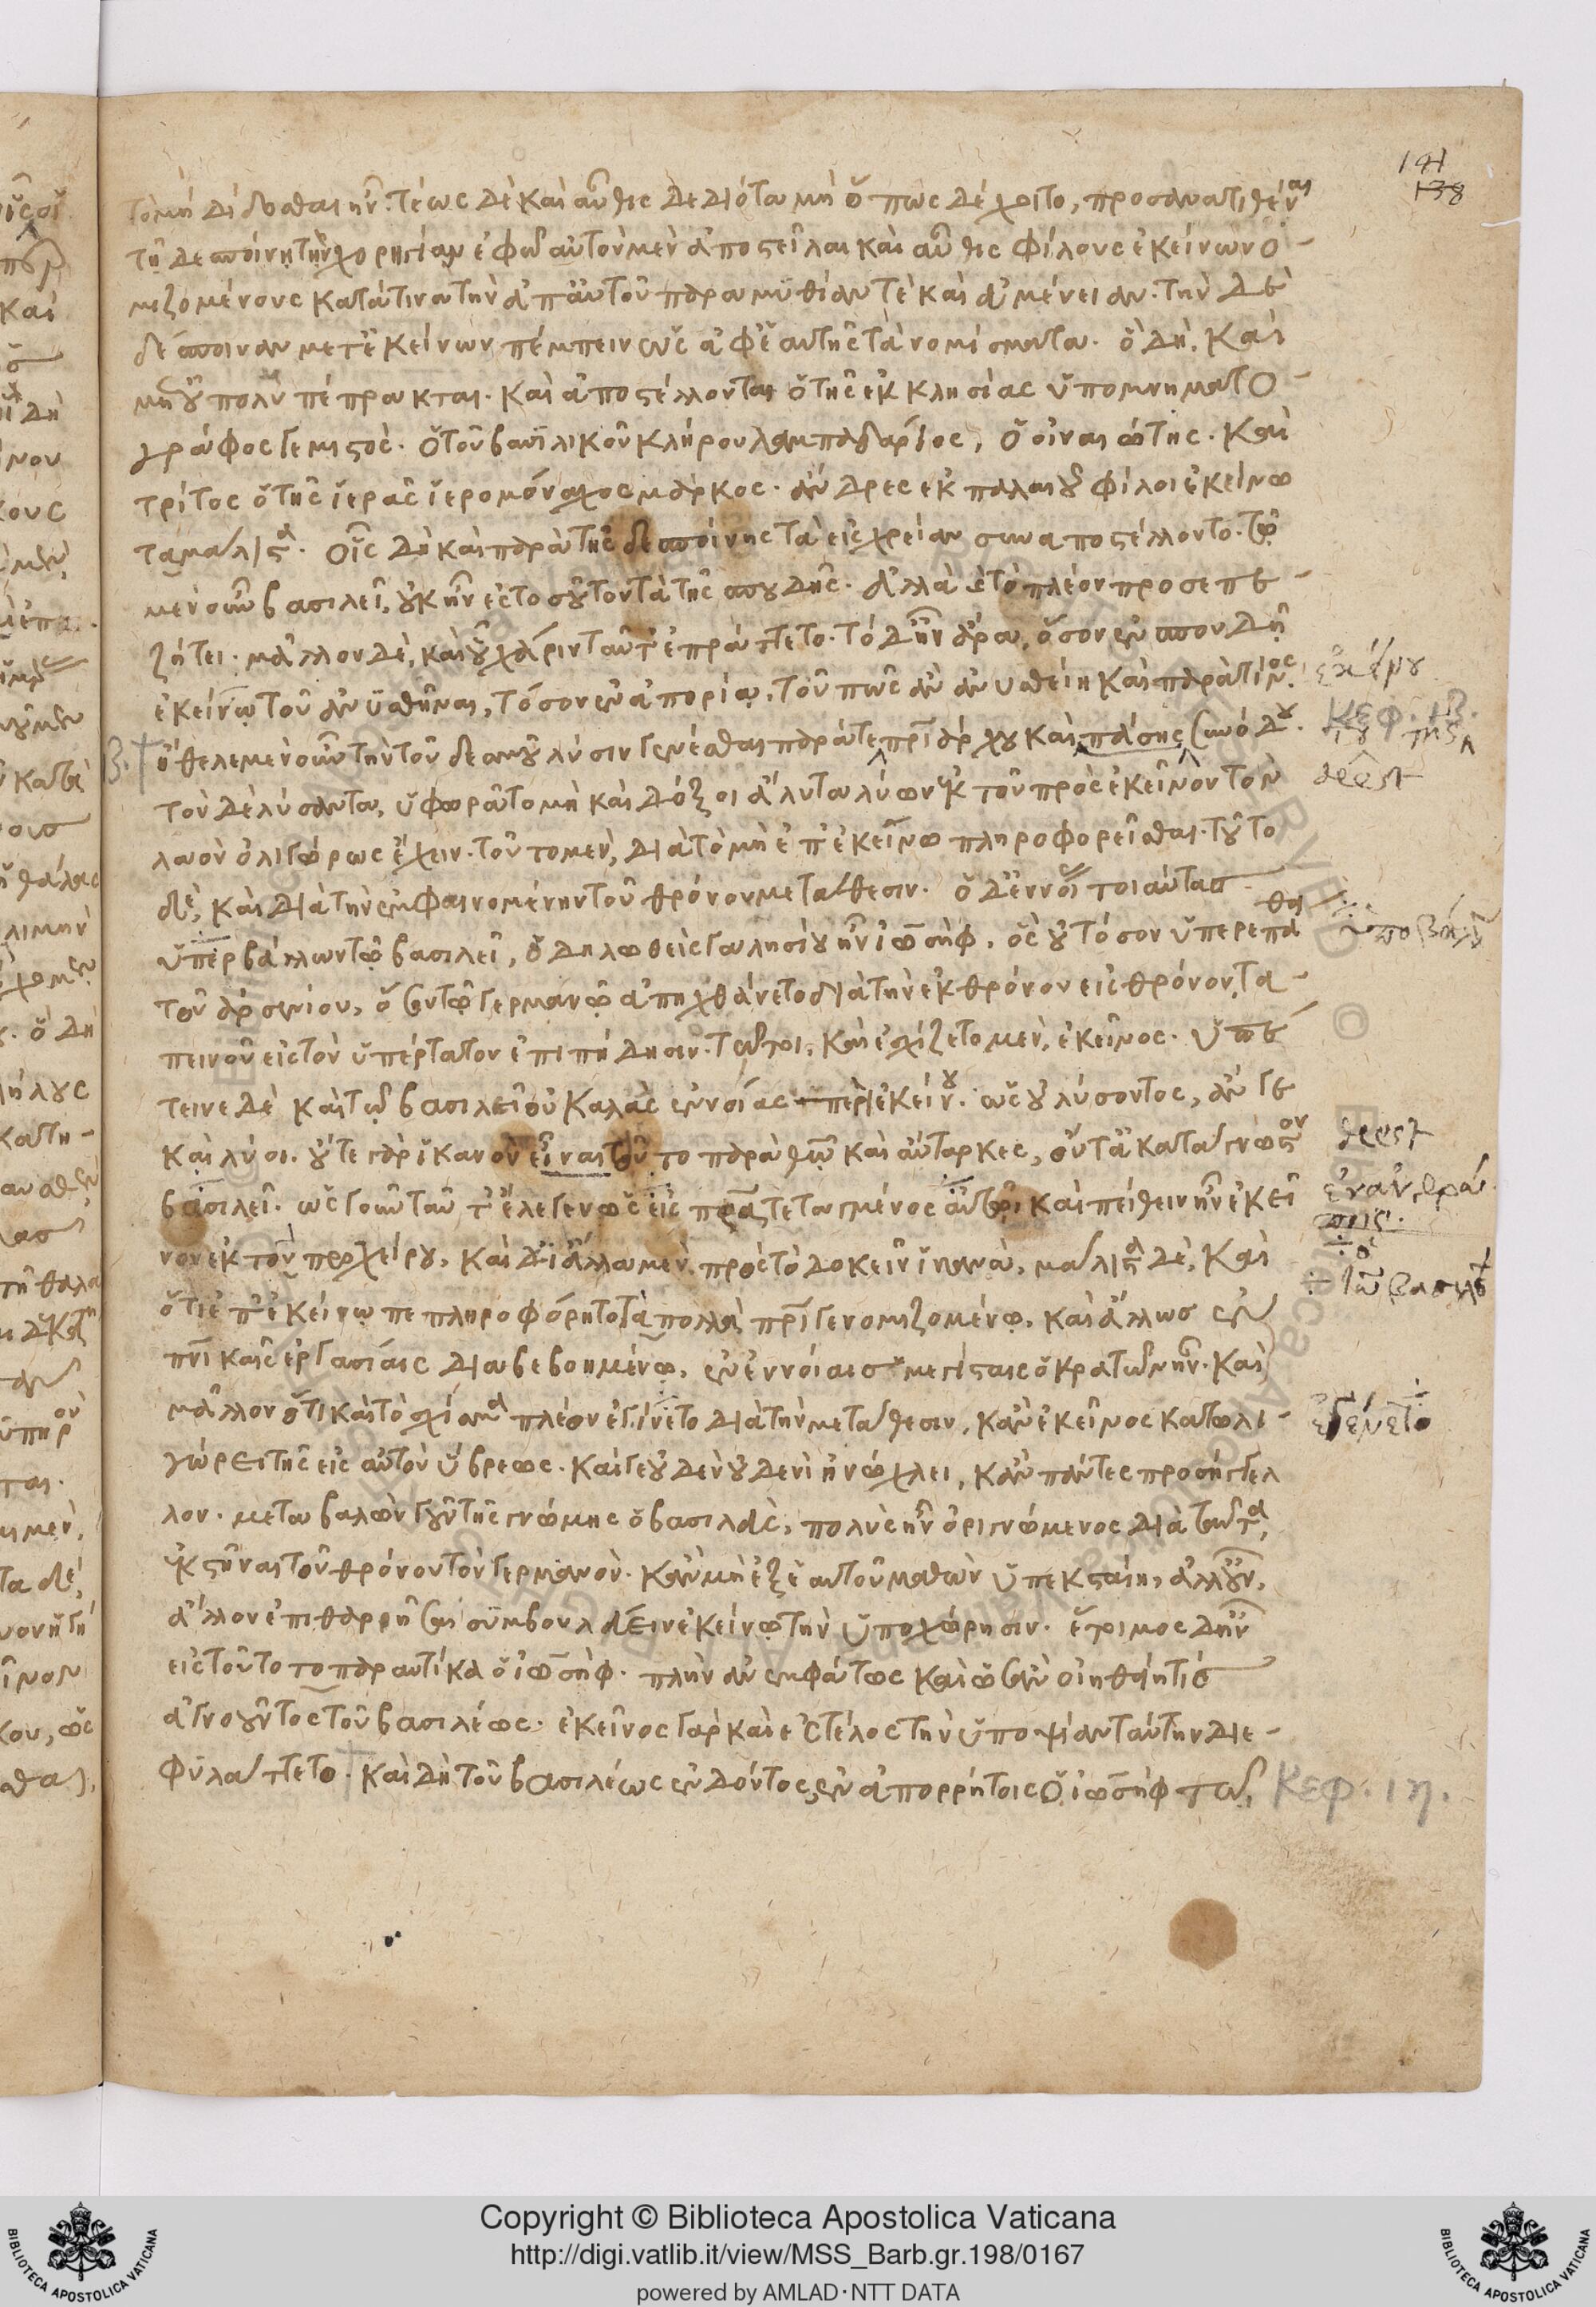 141
138
τὸ μὴ δίδοσθαι ἦν. τέως δὲ καὶ αὖθις δεδιότα μὴ ὅπως δέχοιτο, προσανατιθέναι
τῇ δεσποίνῃ τὴν χορηγίαν ἐφ ὧ αὐτὸν μὲν ἀποστεῖλαι καὶ αὖθις φίλους ἐκείνω νο-
μιζομένους κατά τινα τὴν ἀπ αὐτοῦ παραμυθίαν τὲ καὶ εὐμένειαν. τὴν δὲ
δέσποιναν μετ ἐκείνων πέμπειν ὡς ἀφ ἑαυτῆς τὰ νομίσματα. ὃ δὴ, καὶ
μετ οὐ πολὺ πέπρακται. καὶ ἀποστέλλονται ὁ τῆς ἐκκλησίας ὑπομνηματο-
γράφος γεμιστός. ὁ τοῦ βασιλικοῦ κλήρου λαμπαδάριος, ὁ οἰναιώτης. καὶ
τρίτος ὁ τῆς ἱερᾶς ἱερομόναχος μάρκος. ἄνδρες ἐκ παλαιοῦ φίλοι ἐκείνω
τὰ μάλιστα. οἷς δὴ καὶ παρὰ τῆς δεσποίνης τὰ εἰς χρείαν συναποστέλλοντο. τῶ
μὲν οὖν βασιλεῖ, οὐκ ἦν ἐς τοσοῦτον τὰ τῆς σπουδῆς. ἀλλὰ ἐς τὸ πλέον προσεπε-
ζήτει. μᾶλλον δὲ, καὶ οὗ χάριν ταῦτ ἐπράττετο. τὸ δ ἦν ἄρα, ὅσον ἐν σπουδῇ
ἐκείνω τοῦ ἀνυσθῆναι, τόσον ἐν ἀπορία, τοῦ πῶς ἂν ἀνυσθείη καὶ παρὰ τίνος.
ἤθελε μὲν οὖν τὴν τοῦ δεσμοῦ λύσιν γενέσθαι παρά τε πατριάρχου καὶ πάσης συνόδου.
τὸν δὲ λύσαντα, ὑφωρᾶτο μὴ καὶ δόξοι ἄλυτα λύων ἐκ τοῦ πρὸς ἐκεῖνον τὸν
λαὸν ὀλιγώρως ἔχειν. τοῦτο μὲν, διὰ τὸ μὴ ἐπ ἐκείνω πληροφορεῖσθαι. τοῦτο
δὲ, καὶ διὰ τὴν ἐμφαινομένην τοῦ θρόνου μετάθεσιν. ὁ δ ἐννοίας τοιαύτας
ὑπερβάλλων τῶ βασιλεῖ, ὁ δηλωθεὶς γαλησίου ἦν ἰωσὴφ. ὃς οὐ τόσον ὑπερεπαθει
τοῦ ἀρσενίου, ὅσον τῶ γερμανῶ ἀπηχθάνετο διὰ τὴν ἐκ θρόνου εἰς θρόνον, τα-
πεινοῦ εἰς τὸν ὑπέρτατον ἐπιπήδησιν. τῶ τοι, καὶ ἐσχίζετο μὲν, ἐκεῖνος. ὑπέ-
τεινε δὲ καὶ τῶ βασιλεῖ οὐ καλὰς ἐννοίας περὶ ἐκείνου. ὡς οὐ λύσοντος, ἄν γε
καὶ λύοι. οὔτε γὰρ ἱκανὸν εἶναι τοῦτο παρὰ θεῶ καὶ αὔταρκες, οὔτα καταγνωστὸν
βασιλεῖ. ὡς γοῦν ταῦτ ἔλεγεν ὡς εἰς πατέρα τεταγμένος αὐτῶ, καὶ πείθειν ἦν ἐκεῖ
νον ἐκ τοῦ προχείρου, καὶ δι ἄλλα μὲν, πρὸς τὸ δοκεῖν ἱκανὰ, μάλιστα δὲ, καὶ
ὅτι ἐπ ἐκείνω πεπληροφόρητο τὰ πολλὰ πατρί γε νομιζομένω. καὶ ἄλλως ἐν
πνευματικαῖς ἐργασίαις διαβεβοημένω, ἐν ἐννοίαις μεγίσταις ὁ κρατῶν ἦν. καὶ
μᾶλλον ὅτι καὶ τὸ σχίσμα πλέον ἐγίνετο διὰ τὴν μετάθεσιν, κἂν ἐκεῖνος κατωλι-
γώρει τῆς εἰς αὐτὸν ὕβρεως. καί γε οὐδὲν οὐδενὶ ἠνώχλει, κἂν πάντες προσήγγελ
λον. μεταβαλὼν γοῦν τῆς γνώμης ὁ βασιλεὺς, πολὺς ἦν ὀριγνώμενος διὰ ταῦτα,
ἐκστῆναι τοῦ θρόνου τὸν γερμανὸν. κἂν μὴ ἐξ ἑαυτοῦ μαθὼν ὑπεκσταίη, ἀλλ οὖν,
ἄλλον ἐπιθαρρῆσαι συμβουλεύειν ἐκείνω τὴν ὑποχώρησιν. ἕτοιμος δ ἦν
εἰς τοῦτο τὸ παραυτίκα ὁ ἰωσὴφ. πλὴν ἀνεμφάτως καὶ ὡς ἂν οἰηθείη τίς
ἀγνοοῦντος τοῦ βασιλέως. ἐκεῖνος γὰρ καὶ ἐς τέλος τὴν ὑποψίαν ταύτην διε-
φυλάττετο. καὶ δὴ τοῦ βασιλέως ἐνδόντος, ἐν ἀπορρήτοις ὁ ἰωσὴφ τῶ
Κεφ. ιβ.
deest
deest
ἐγένετο
Κεφ. ιη.
Copyright © Biblioteca Apostolica Vaticana
http://digi.vatlib.it/view/MSS_Barb.gr.198/0167
powered by AMLAD·NTT DATA
BIBLIOTECA APOSTOLICA VATICANA
BIBLIOTECA APOSTOLICA VATICANA